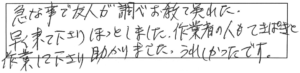 急な事で友人が調べお教て異れた.
早く来て下さりほっとしました.作業者の人もてきぱきと
作業して下さり助かりました.うれしかったです。